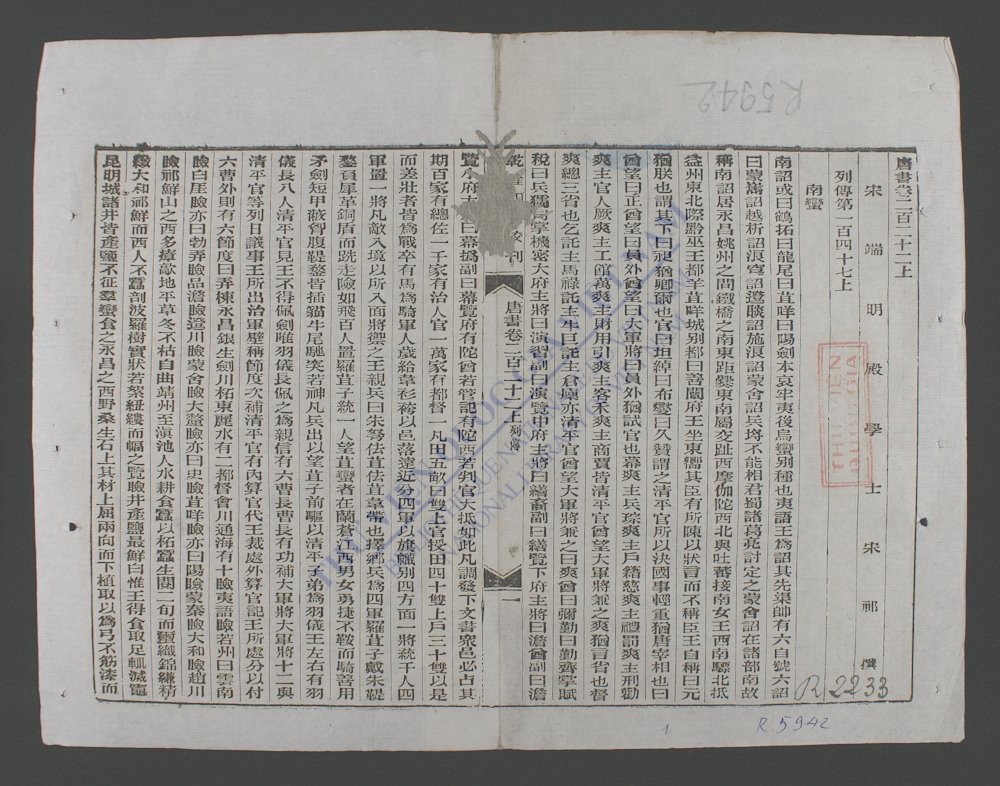 R5942
唐書卷二百二十二上
宋端明殿學士宋祁撰
列傳第一百四十七上
南蠻
南詔或曰鶴拓曰龍尾曰苴咩曰陽劍本哀牢夷後烏蠻別種也夷語王爲詔其先渠帥有六自號六詔
曰蒙巂詔越析詔浪穹詔邆睒詔施浪詔蒙舍詔兵埒不能相君蜀諸葛亮討定之蒙舍詔在諸部南故
稱南詔居永昌姚州之間鐵橋之南東距爨東南屬交趾西摩伽陀西北與吐蕃接南女王西南驃北抵
益州東北際黔巫王都羊苴咩城別都曰善闡府王坐東嚮其臣有所陳以狀言而不稱臣王自稱曰元
猶朕也謂其下曰昶猶卿爾也官曰坦綽曰布燮曰久贊謂之清平官所以決國事輕重猶唐宰相也曰
酋望曰正酋望曰員外酋望曰大軍將曰員外猶試官也幕爽主兵琮爽主戶籍慈爽主禮罰爽主刑勸
爽主官人厥爽主工館萬爽主財用引爽主客禾爽主商賈皆清平官酋望大軍將兼之爽猶言省也督
爽總三省也乞託主馬祿託主牛巨託主倉廩亦清平官酋望大軍將兼之曰爽酋曰彌勤曰勤齊掌賦
稅曰兵獳司掌機密大府主將曰演習副曰演覽中府主將曰繕裔副曰繕覽下府主將曰澹酋副曰澹
刊
唐書卷二百二十二上 列傳
一
覽小府主將曰幕撝副曰幕覽府有陀酋若管記有陀西若判官大抵如此凡調發下文書衆邑必占其
期百家有總佐一千家有治人官一萬家有都督一凡田五畝曰雙上官授田四十雙上戶三十雙以是
而差壯者皆爲戰卒有馬爲騎軍人歲給韋衫袴以邑落遠近分四軍以旗幟別四方面一將統千人四
軍置一將凡敵入境以所入面將禦之王親兵曰朱弩佉苴佉苴韋帶也擇鄉兵爲四軍羅苴子戴朱鞮
鍪負犀革銅盾而跣走險如飛百人置羅苴子統一人望苴蠻者在蘭蒼江西男女勇捷不鞍而騎善用
矛劍短甲蔽胷腹鞮鍪皆插貓牛尾馳突若神凡兵出以望苴子前驅以清平子弟爲羽儀王左右有羽
儀長八人清平官見王不得佩劍唯羽儀長佩之爲親信有六曹長曹長有功補大軍將大軍將十二與
清平官等列日議事王所出治軍壁稱節度次補清平官有內算官代王裁處外算官記王所處分以付
六曹外則有六節度曰弄棟永昌銀生劍川柘東麗水有二都督會川通海有十瞼夷語瞼若州曰雲南
瞼白厓瞼亦曰勃弄瞼品澹瞼邆川瞼蒙舍瞼大釐瞼亦曰史瞼苴咩瞼亦曰陽瞼蒙秦瞼大和瞼趙川
瞼祁鮮山之西多瘴歊地平草冬不枯自曲靖州至滇池人水耕食蠶以柘蠶生閱二旬而繭織錦縑精
緻大和祁鮮而西人不蠶剖波羅樹實狀若絮紐縷而幅之覽瞼井產鹽最鮮白惟王得食取足輒滅竈
昆明城諸井皆產鹽不征羣蠻食之永昌之西野桑生石上其材上屈兩向而下植取以爲弓不筋漆而
R 2233
R.5942
1
THƯ VIỆN QUỐC GIA VIỆT NAM
BIBLIOTHEQUE NATIONALE DU VIETNAM
NATIONAL LIBRARY OF VIETNAM